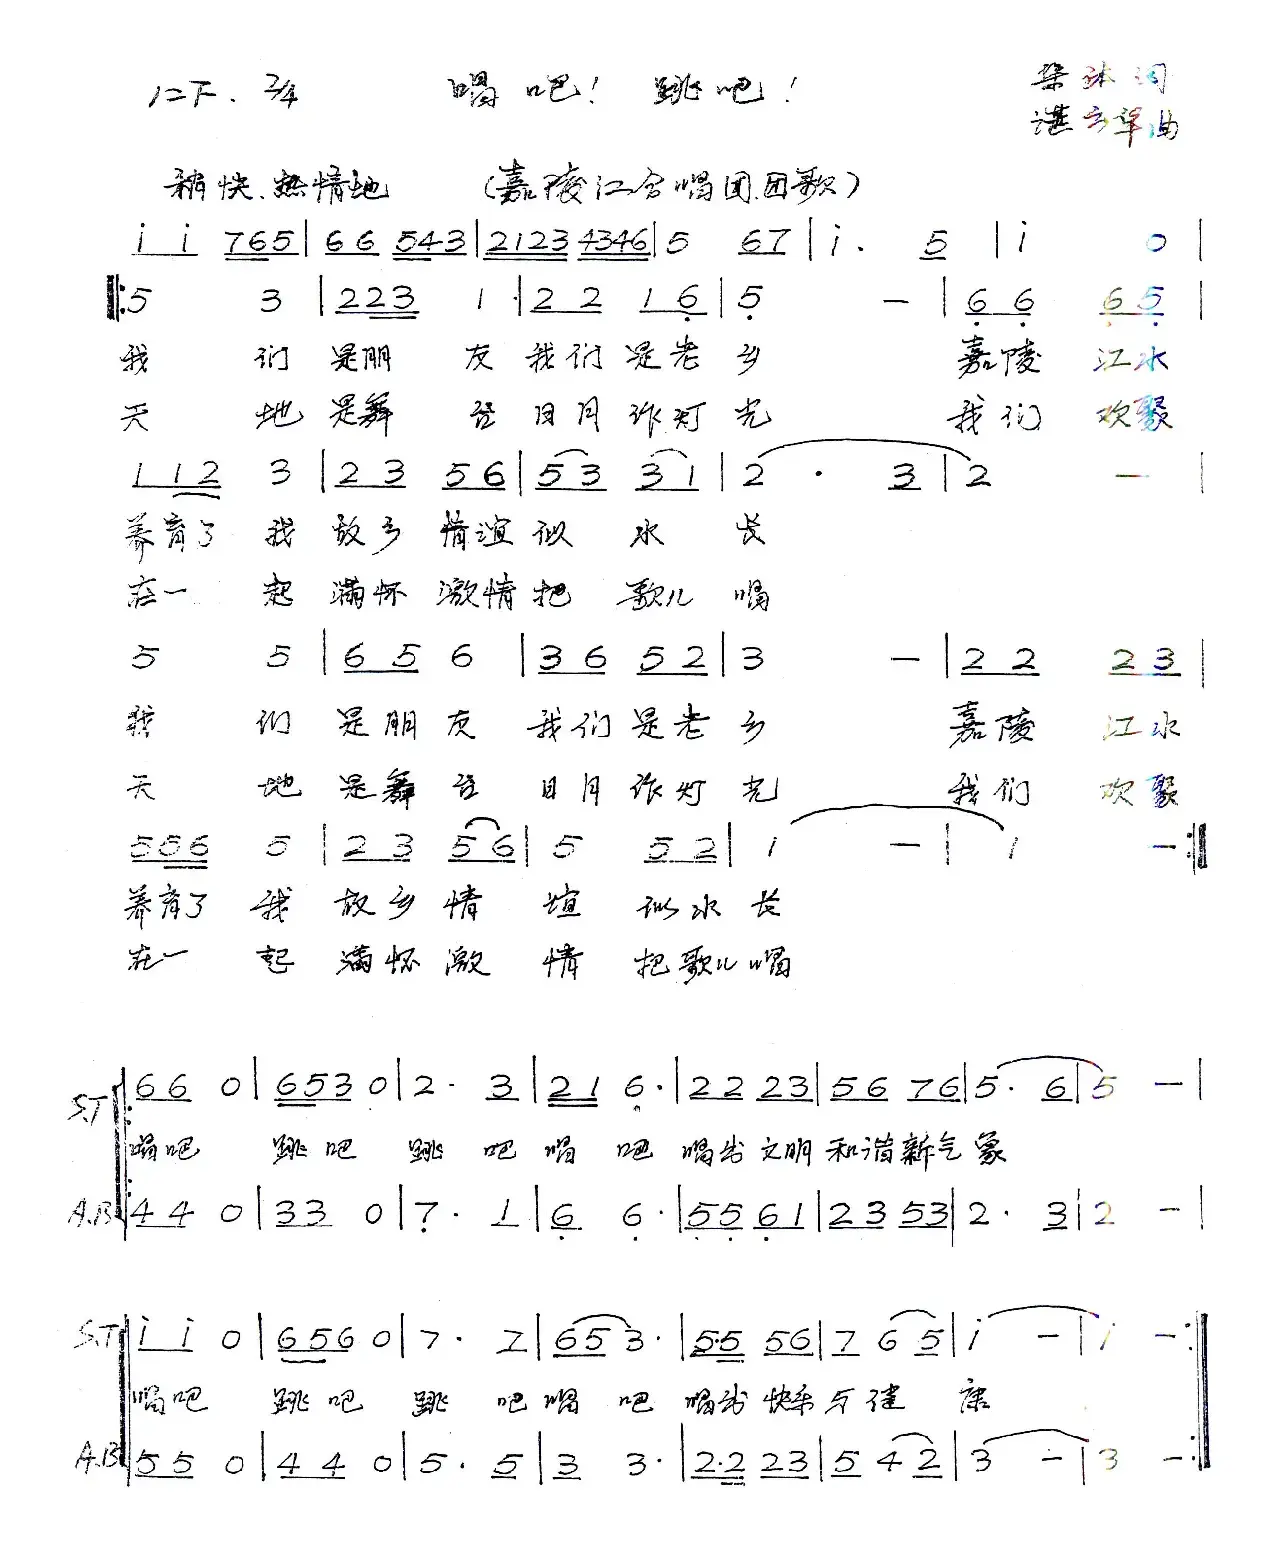 1=F. 2/4 唱吧! 跳吧!
词
谌云军曲
稍快、热情地 (嘉陵江合唱团.团歌)
i i 765 | 66 543 | 2123 4346 | 5 67 | i. 5 | i 0 |
‖: 5 3 | 223 1 · | 22 16̣ | 5̣ — | 6̣6̣ 6̣5̣ |
我们是朋友我们是老乡 嘉陵江水
天地是舞台日月作灯光 我们欢聚
112 3 | 23 56 | 53 31 | 2 · 3 | 2 — |
养育了我故乡情谊似水长
在一起满怀激情把歌儿唱
5 5 | 65 6 | 36 52 | 3 — | 22 23 |
我们是朋友我们是老乡 嘉陵江水
天地是舞台日月作灯光 我们欢聚
556 5 | 23 56 | 5 52 | i — | i — :‖
养育了我故乡情谊似水长
在一起满怀激情把歌儿唱
S.T ‖: 66 0 | 653 0 | 2 · 3 | 21 6̣ · | 22 23 | 56 76 | 5 · 6 | 5 — |
唱吧 跳吧 跳吧唱吧 唱出文明和谐新气象
A.B ‖: 44 0 | 33 0 | 7̣ · 1 | 6̣ 6̣ · | 5̣5̣ 6̣1 | 23 53 | 2 · 3 | 2 — |
S.T i i 0 | 656 0 | 7 · 7 | 65 3 · | 5·5 56 | 7 65 | i — | i — :‖
唱吧 跳吧 跳吧唱吧 唱出快乐与健康
A.B 55 0 | 44 0 | 5 · 5 | 3 3 · | 2·2 23 | 5 42 | 3 — | 3 — :‖